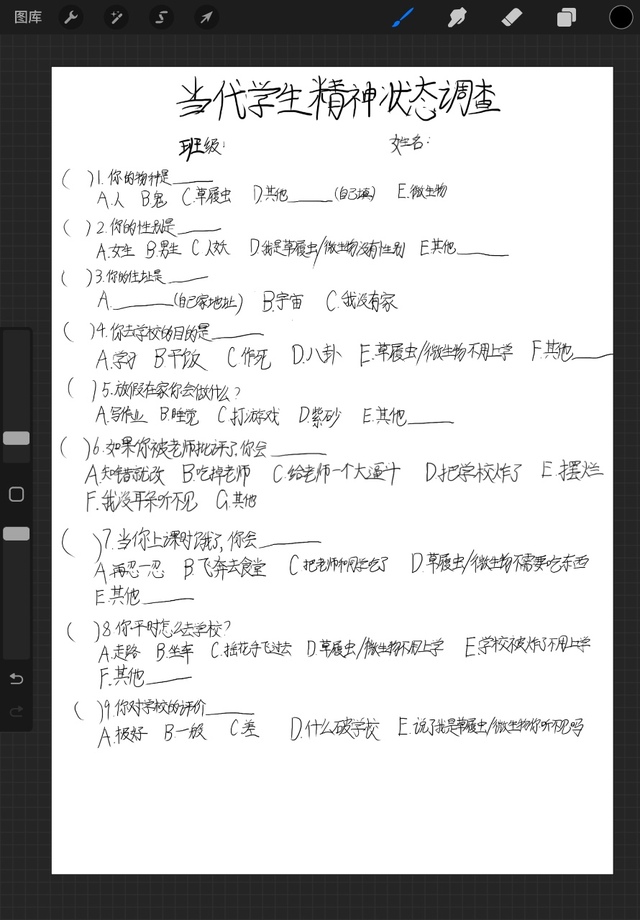 图库
当代学生精神状态调查
班级: 姓名:
( )1.你的物种是____
A.人 B.鬼 C.草履虫 D.其他____(自己填) E.微生物
( )2.你的性别是____
A.女生 B.男生 C.人妖 D.我是草履虫/微生物没有性别 E.其他____
( )3.你的住址是____
A.____(自己家地址) B.宇宙 C.我没有家
( )4.你去学校的目的是____
A.学习 B.干饭 C.作死 D.八卦 E.草履虫/微生物不用上学 F.其他____
( )5.放假在家你会做什么?
A.写作业 B.睡觉 C.打游戏 D.紫砂 E.其他____
( )6.如果你被老师批评了,你会____
A.知错就改 B.吃掉老师 C.给老师一个大逼斗 D.把学校炸了 E.摆烂
F.我没耳朵听不见 G.其他
( )7.当你上课时饿了,你会____
A.再忍一忍 B.飞奔去食堂 C.把老师和同学吃了 D.草履虫/微生物不需要吃东西
E.其他____
( )8.你平时怎么去学校?
A.走路 B.坐车 C.抬花手飞过去 D.草履虫/微生物不用上学 E.学校被炸了不用上学
F.其他____
( )9.你对学校的评价____
A.极好 B.一般 C.差 D.什么破学校 E.说了我是草履虫/微生物你听不见吗